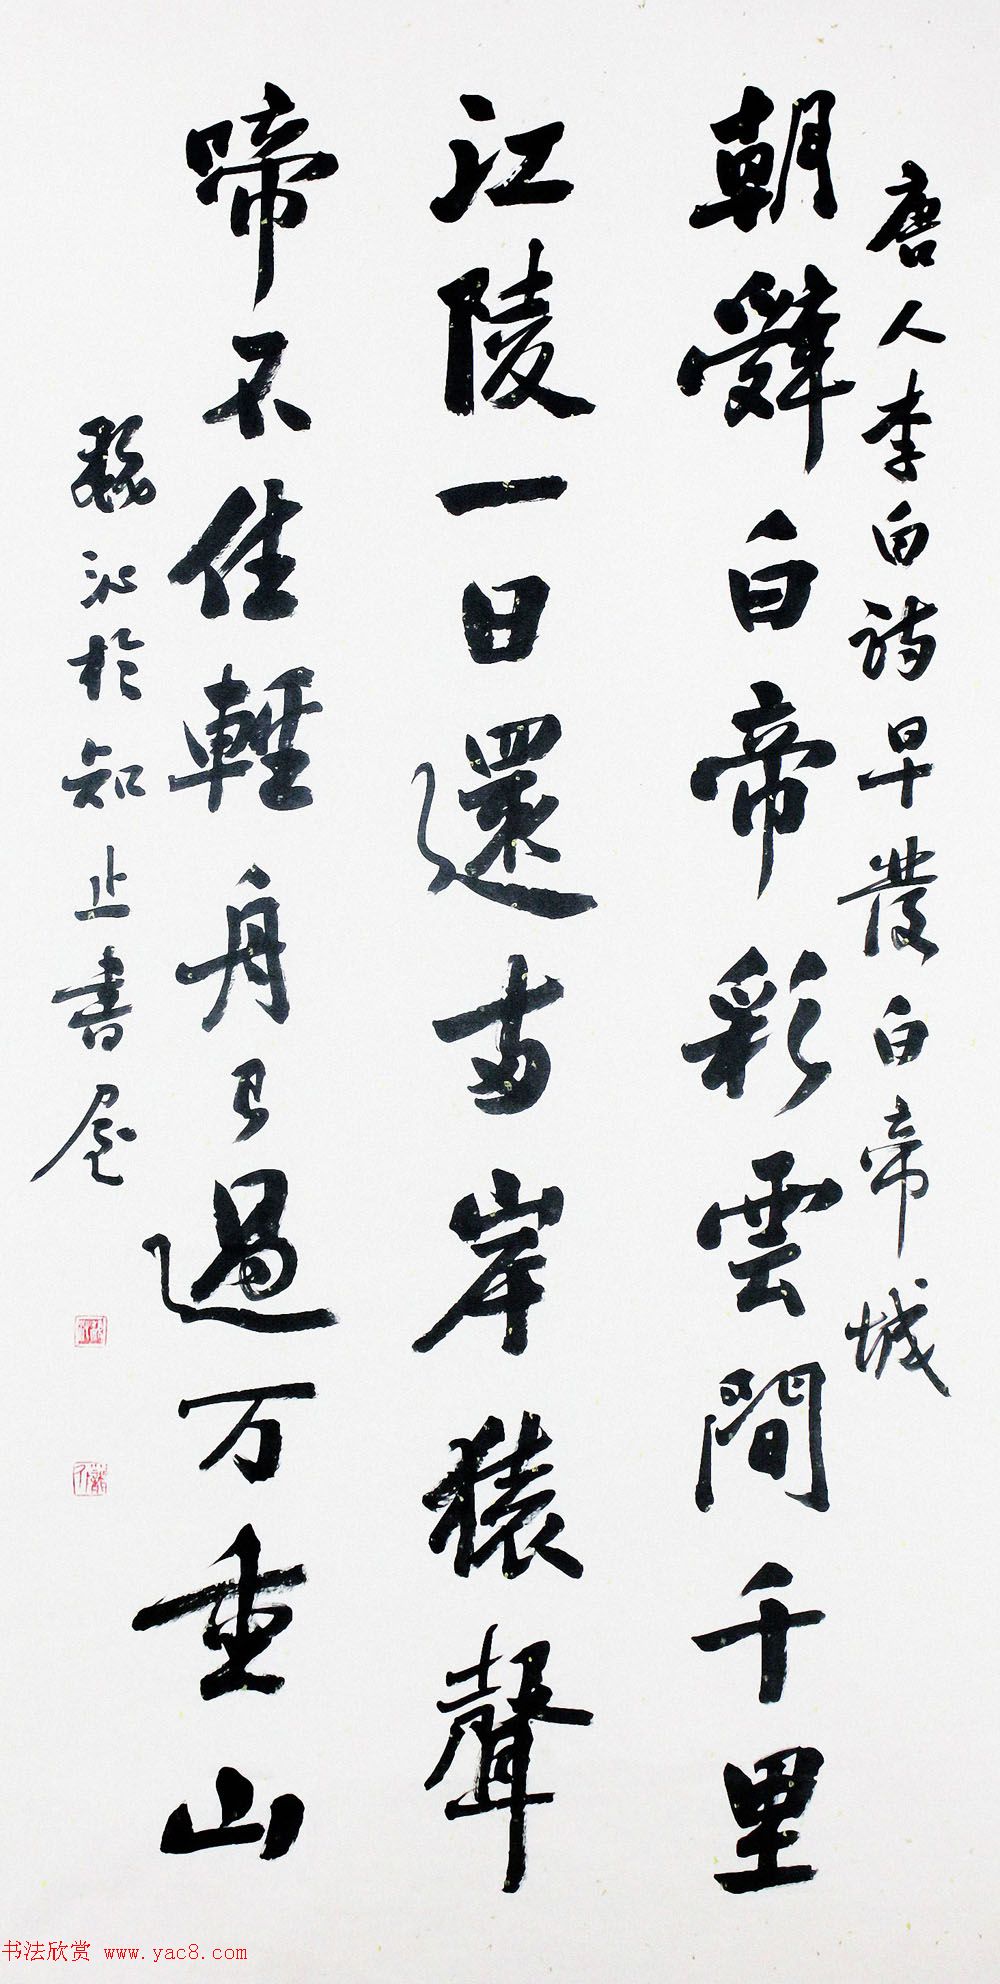 唐人李白詩早發白帝城
朝辭白帝彩雲間千里
江陵一日還兩岸猿聲
啼不住輕舟已過万重山
於知止書屋
书法欣赏 www.yac8.com